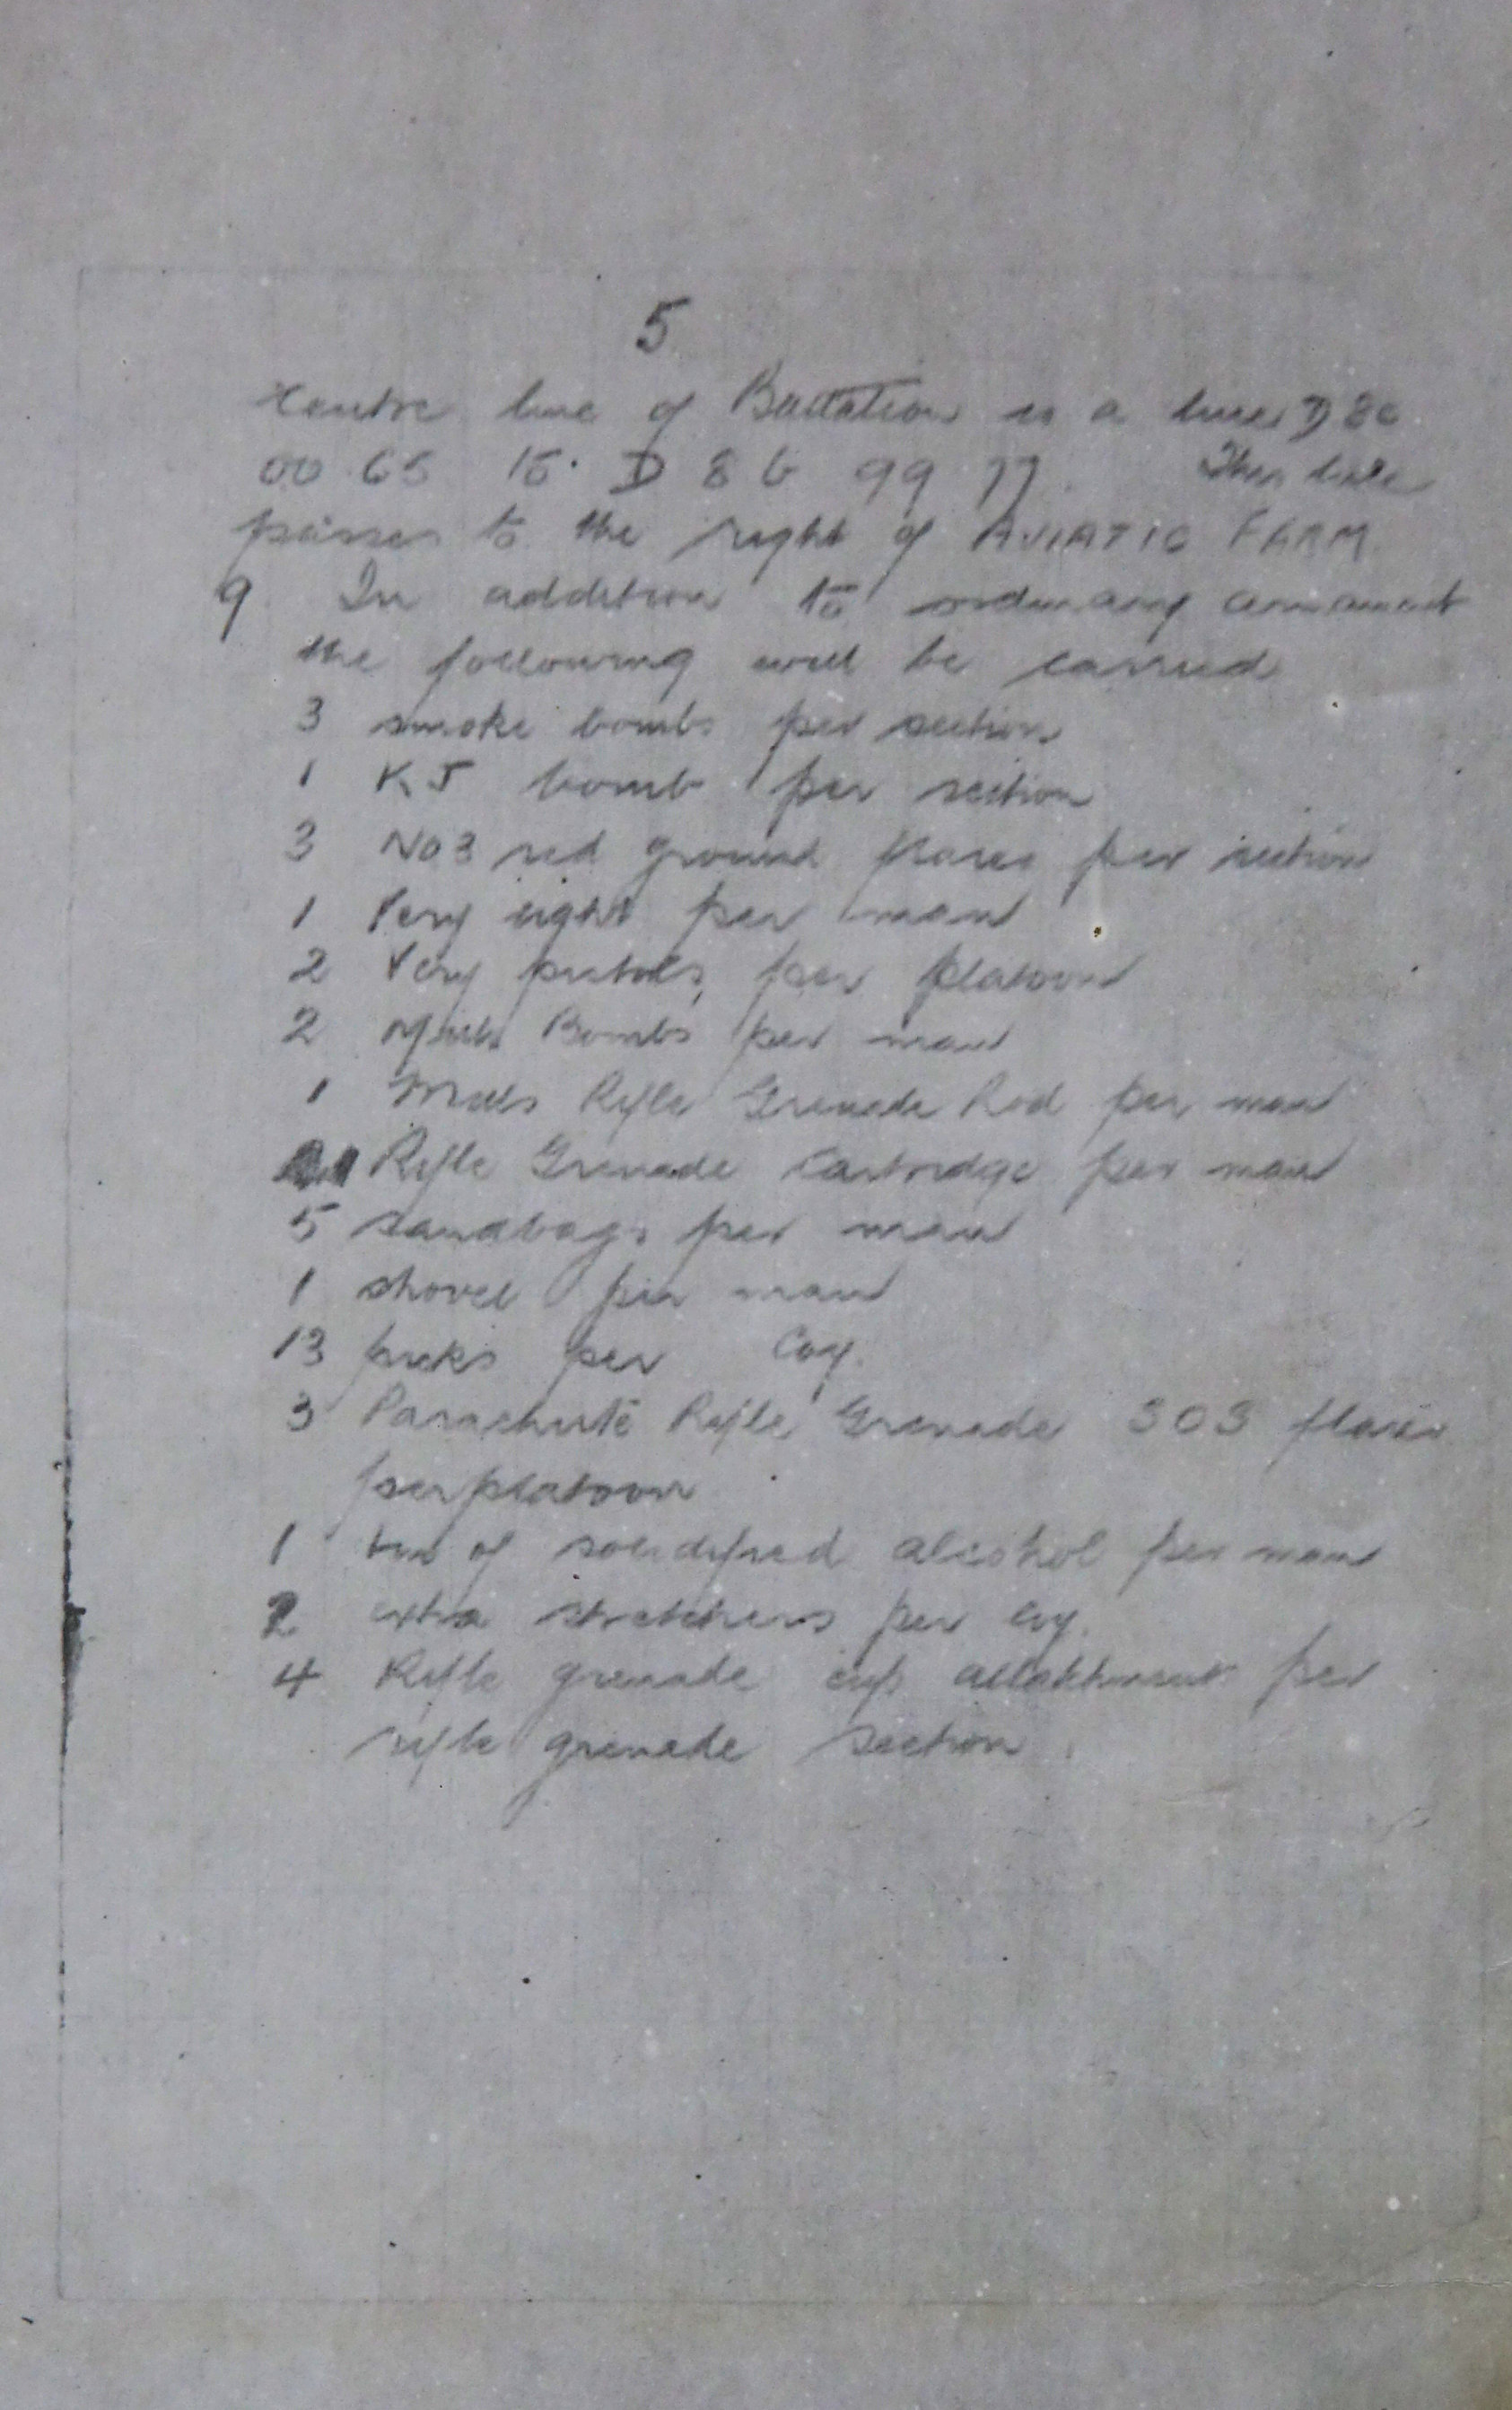 5
Centre line of Battalion is a line D 8c
00 65 to D 8 b 99 77. This line
passes to the right of AVIATIC FARM.
9 In addition to ordinary armament
the following will be carried
3 smoke bombs per section
1 KJ bomb per section
3 No 3 red ground flares per section
1 Very light per man
2 Very pistols per platoon
2 Mills Bombs per man
1 Mills Rifle Grenade Rod per man
1 Rifle Grenade Cartridge per man
5 sandbags per man
1 shovel per man
13 picks per Coy.
3 Parachute Rifle Grenade SOS flares
per platoon
1 tin of solidified alcohol per man
2 extra stretchers per Coy.
4 Rifle grenade cup attachment per
rifle grenade section.